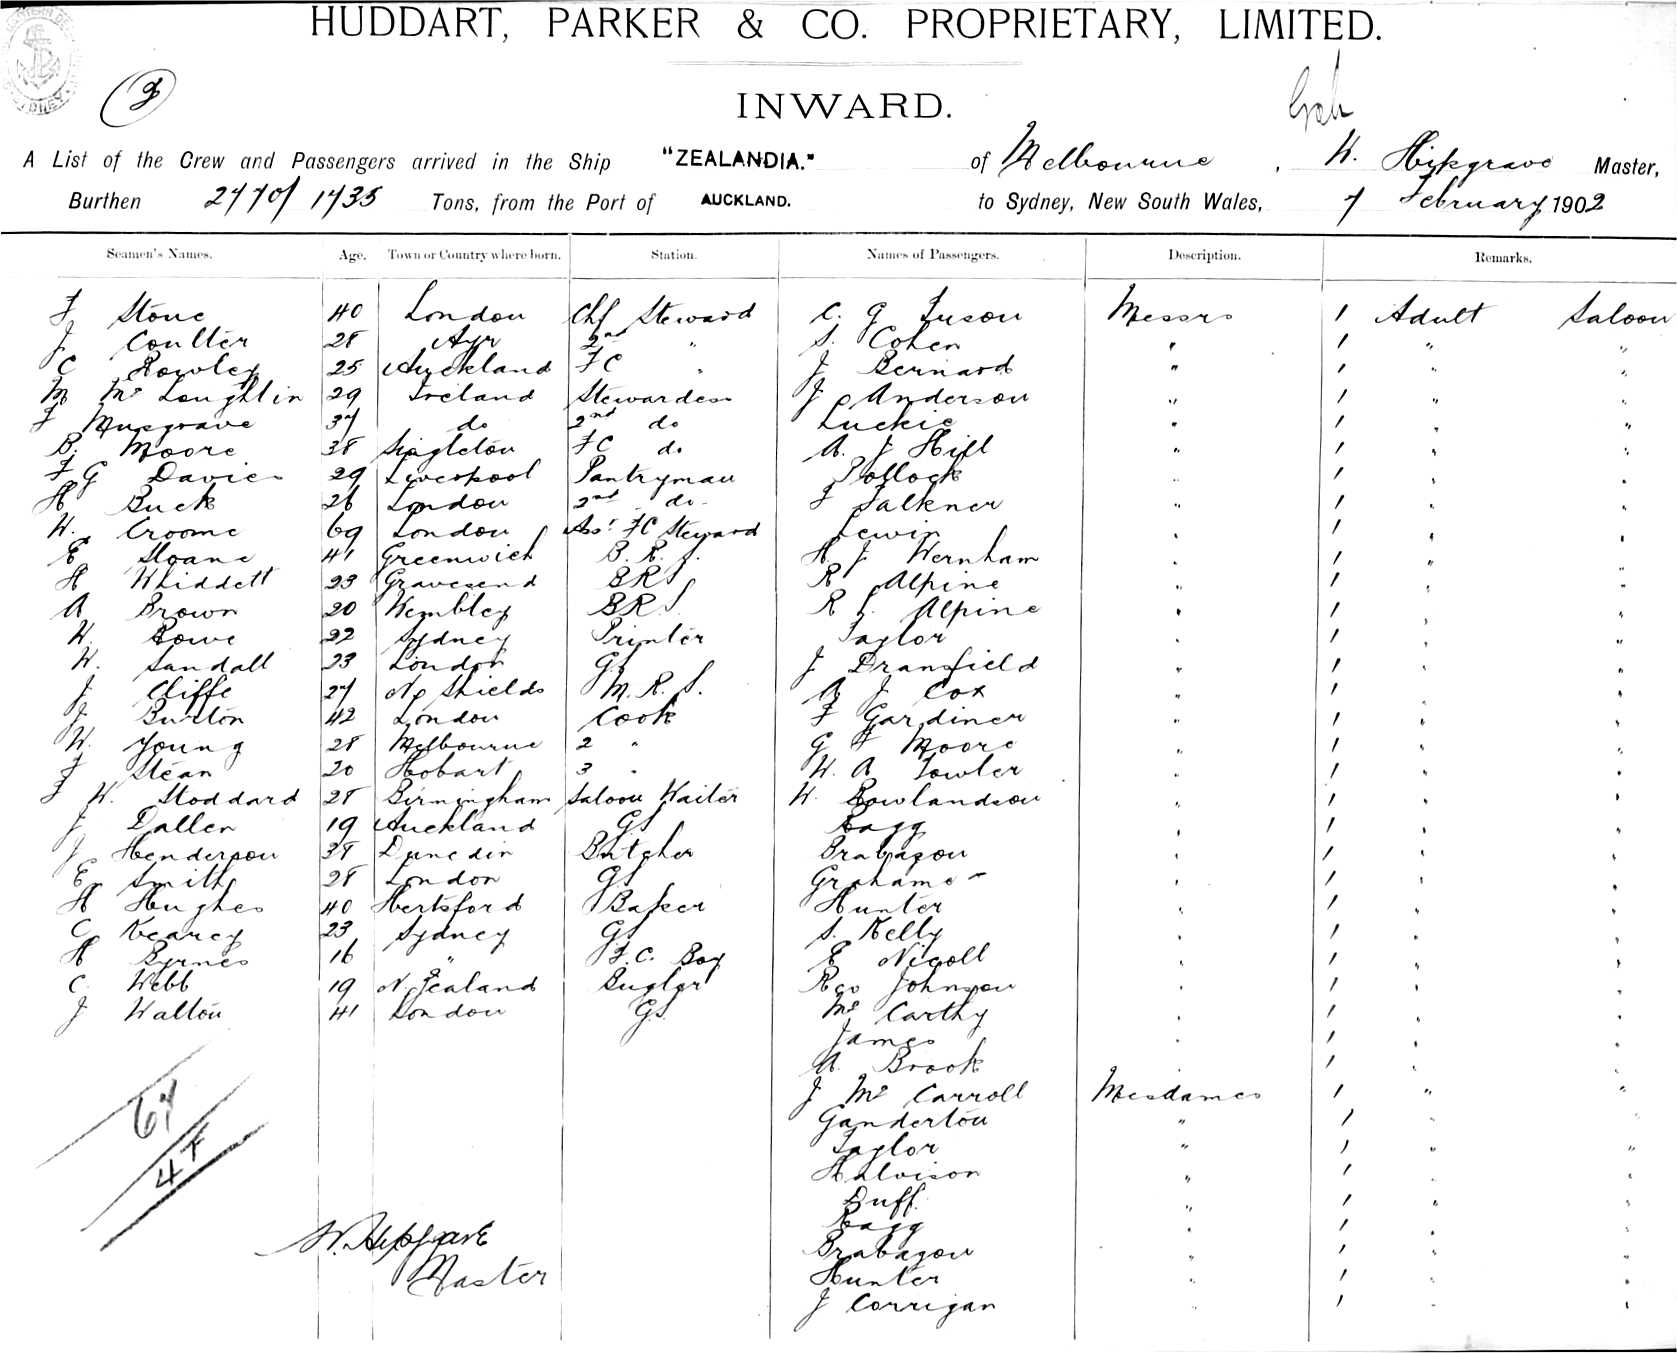 HUDDART, PARKER & CO. PROPRIETARY, LIMITED.
INWARD.
A List of the Crew and Passengers arrived in the Ship "ZEALANDIA." of Melbourne, W. Hipgrave Master,
Burthen 2770/1435 Tons, from the Port of AUCKLAND. to Sydney, New South Wales, 7 February 1902
Seamen's Names. Age. Town or Country where born. Station. Names of Passengers. Description. Remarks.
F Stone 40 London Chf Steward C. G Tuson Messrs 1 Adult Saloon
J Coulter 28 Ayr 2nd " S. Cohen " 1 " "
C Rowley 25 Auckland FC " J Bernard " 1 " "
M Mc Loughlin 29 Ireland Stewardess J Anderson " 1 " "
F Musgrave 37 do 2nd do Luckie " 1 " "
B. Moore 38 Singleton FC do A. J Hill " 1 " "
F G Davies 29 Liverpool Pantryman Pollock " 1 " "
H Buck 26 London 2nd do F Falkner " 1 " "
W. Croome 69 London Asst FC Steward Lewin " 1 " "
E Sloane 41 Greenwich B. R. S. H J Wernham " 1 " "
H Whiddett 23 Gravesend BRS R Alpine " 1 " "
A Brown 20 Wembley BRS R S. Alpine " 1 " "
W. Rowe 22 Sydney Printer Taylor " 1 " "
W. Sandall 23 London GS J Dransfield " 1 " "
J Cliffe 27 No Shields M. R. S. A J Cox " 1 " "
J Burton 42 London Cook F Gardiner " 1 " "
W. Young 28 Melbourne 2 " G F Moore " 1 " "
F Stean 20 Hobart 3 " W. A Fowler " 1 " "
F W. Stoddard 28 Birmingham Saloon Waiter W. Rowlandson " 1 " "
J Dallen 19 Auckland GS Bagg " 1 " "
J Henderson 38 Dunedin Butcher Brabazon " 1 " "
E Smith 28 London GS Grahame " 1 " "
H Hughes 40 Hertsford Baker Hunter " 1 " "
C Kearey 23 Sydney GS S. Kelly " 1 " "
H Byrnes 16 " F.C. Boy E Nicoll " 1 " "
C. Webb 19 N Zealand Bugler Reo Johnson " 1 " "
J Walton 41 London GS. Mc Carthy " 1 " "
James " 1 " "
A. Brook " 1 " "
J Mc Carroll Mesdames 1 " "
Ganderton " 1 " "
Taylor " 1 " "
Halvison " 1 " "
Buff " 1 " "
Bagg " 1 " "
Brabazon " 1 " "
Hunter " 1 " "
J Corrigan " 1 " "
67
47
W. Hipgrave
Master